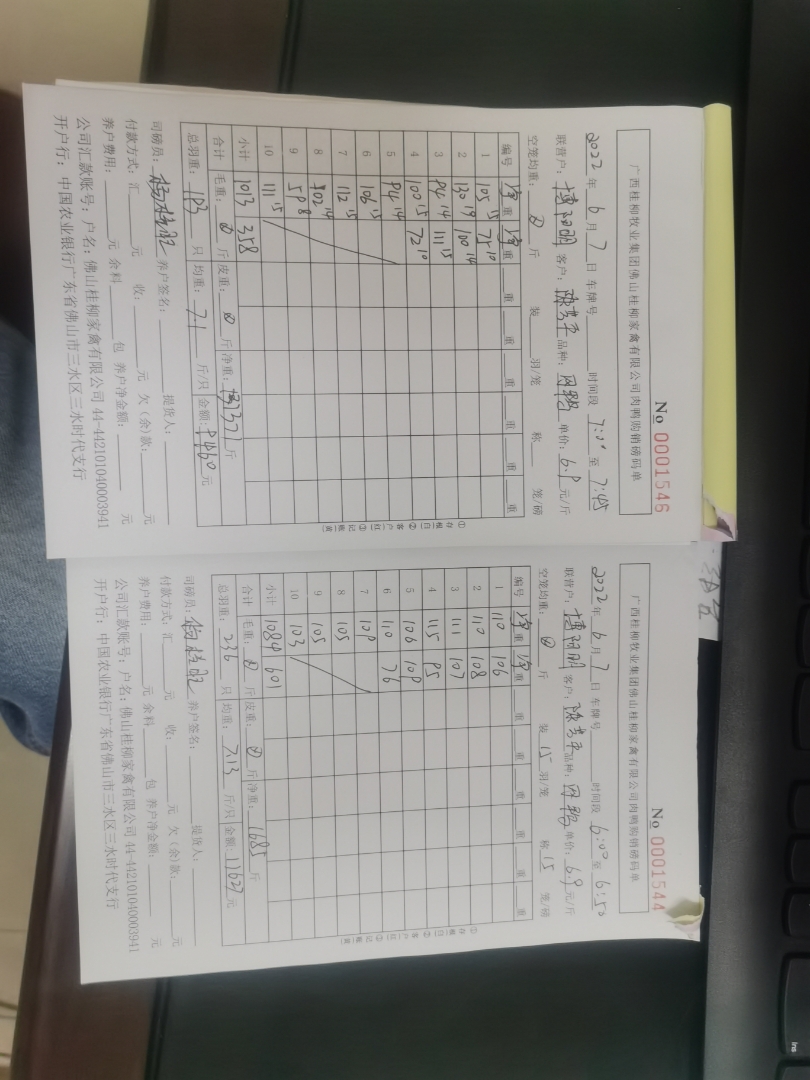 广西桂柳牧业集团佛山桂柳家禽有限公司肉鸭购销磅码单
No 0001546
2022年 6月 7日 车牌号 时间段 7:00 至 7:45
联营户： 客户： 品种： 单价：6.9元/斤
空笼均重： 斤 装 羽/笼 称 笼/磅
编号 净重 净重 重 重 重 重 重 重
1 105 15 75 10
2 130 19 100 14
3 94 14 111 15
4 100 15 72 10
5 94 14
6 106 15
7 112 15
8 102 14
9 59 8
10 111 15
小计 1013 358
合计 毛重： 斤 皮重： 斤 净重： 斤
总羽重：193 只 均重：7.1 斤/只 金额：9460元
司磅员： 养户签名： 提货人：
付款方式：汇 元 收： 元 欠(余)款： 元
养户费用： 元 余料 包 养户净金额： 元
公司汇款账号：户名：佛山桂柳家禽有限公司 44-442101040003941
开户行：中国农业银行广东省佛山市三水区三水时代支行
①存根白 ②客户红 ③记账黄
广西桂柳牧业集团佛山桂柳家禽有限公司肉鸭购销磅码单
No 0001544
2022年 6月 7日 车牌号 时间段 6:00至 6:50
联营户： 客户： 品种： 单价：6.9元/斤
空笼均重： 斤 装 15 羽/笼 称 15 笼/磅
编号 净重 净重 重 重 重 重 重 重
1 110 106
2 110 108
3 111 107
4 115 95
5 106 109
6 110 76
7 109
8 105
9 105
10 103
小计 1084 601
合计 毛重： 斤 皮重： 斤 净重：1685 斤
总羽重：236 只 均重：7.13 斤/只 金额：11627元
司磅员： 养户签名： 提货人：
付款方式：汇 元 收： 元 欠(余)款： 元
养户费用： 元 余料 包 养户净金额： 元
公司汇款账号：户名：佛山桂柳家禽有限公司 44-442101040003941
开户行：中国农业银行广东省佛山市三水区三水时代支行
①存根白 ②客户红 ③记账黄
Ins